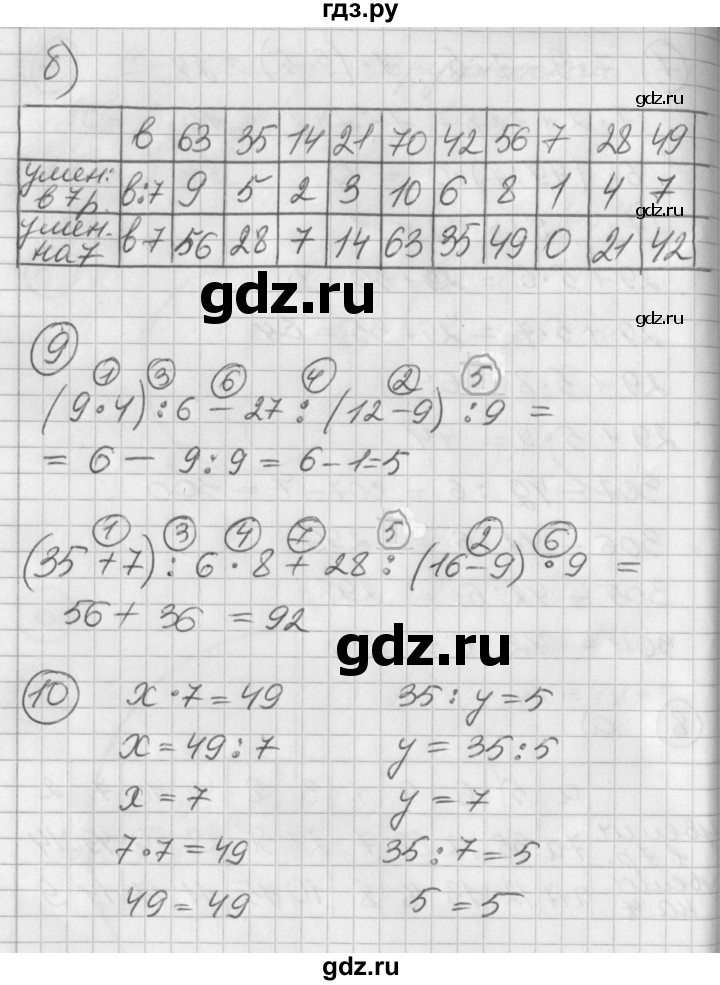 гдз.ру
б)
gdz.ru
в 63 35 14 21 70 42 56 7 28 49
умен: в 7 р. в:7 9 5 2 3 10 6 8 1 4 7
умен- на 7 в 7 56 28 7 14 63 35 49 0 21 42
gdz.ru
gdz.ru
9
1 3 6 4 2 5
(9·4) : 6 - 27 : (12-9) : 9 =
= 6 - 9:9 = 6-1=5
1 3 4 7 5 2 6
(35+7) : 6 · 8 + 28 : (16-9) · 9 =
56 + 36 = 92
gdz.ru
10 x·7=49 35:y=5
x=49:7 y=35:5
x=7 y=7
7·7=49 35:7=5
49=49 5=5
gdz.ru